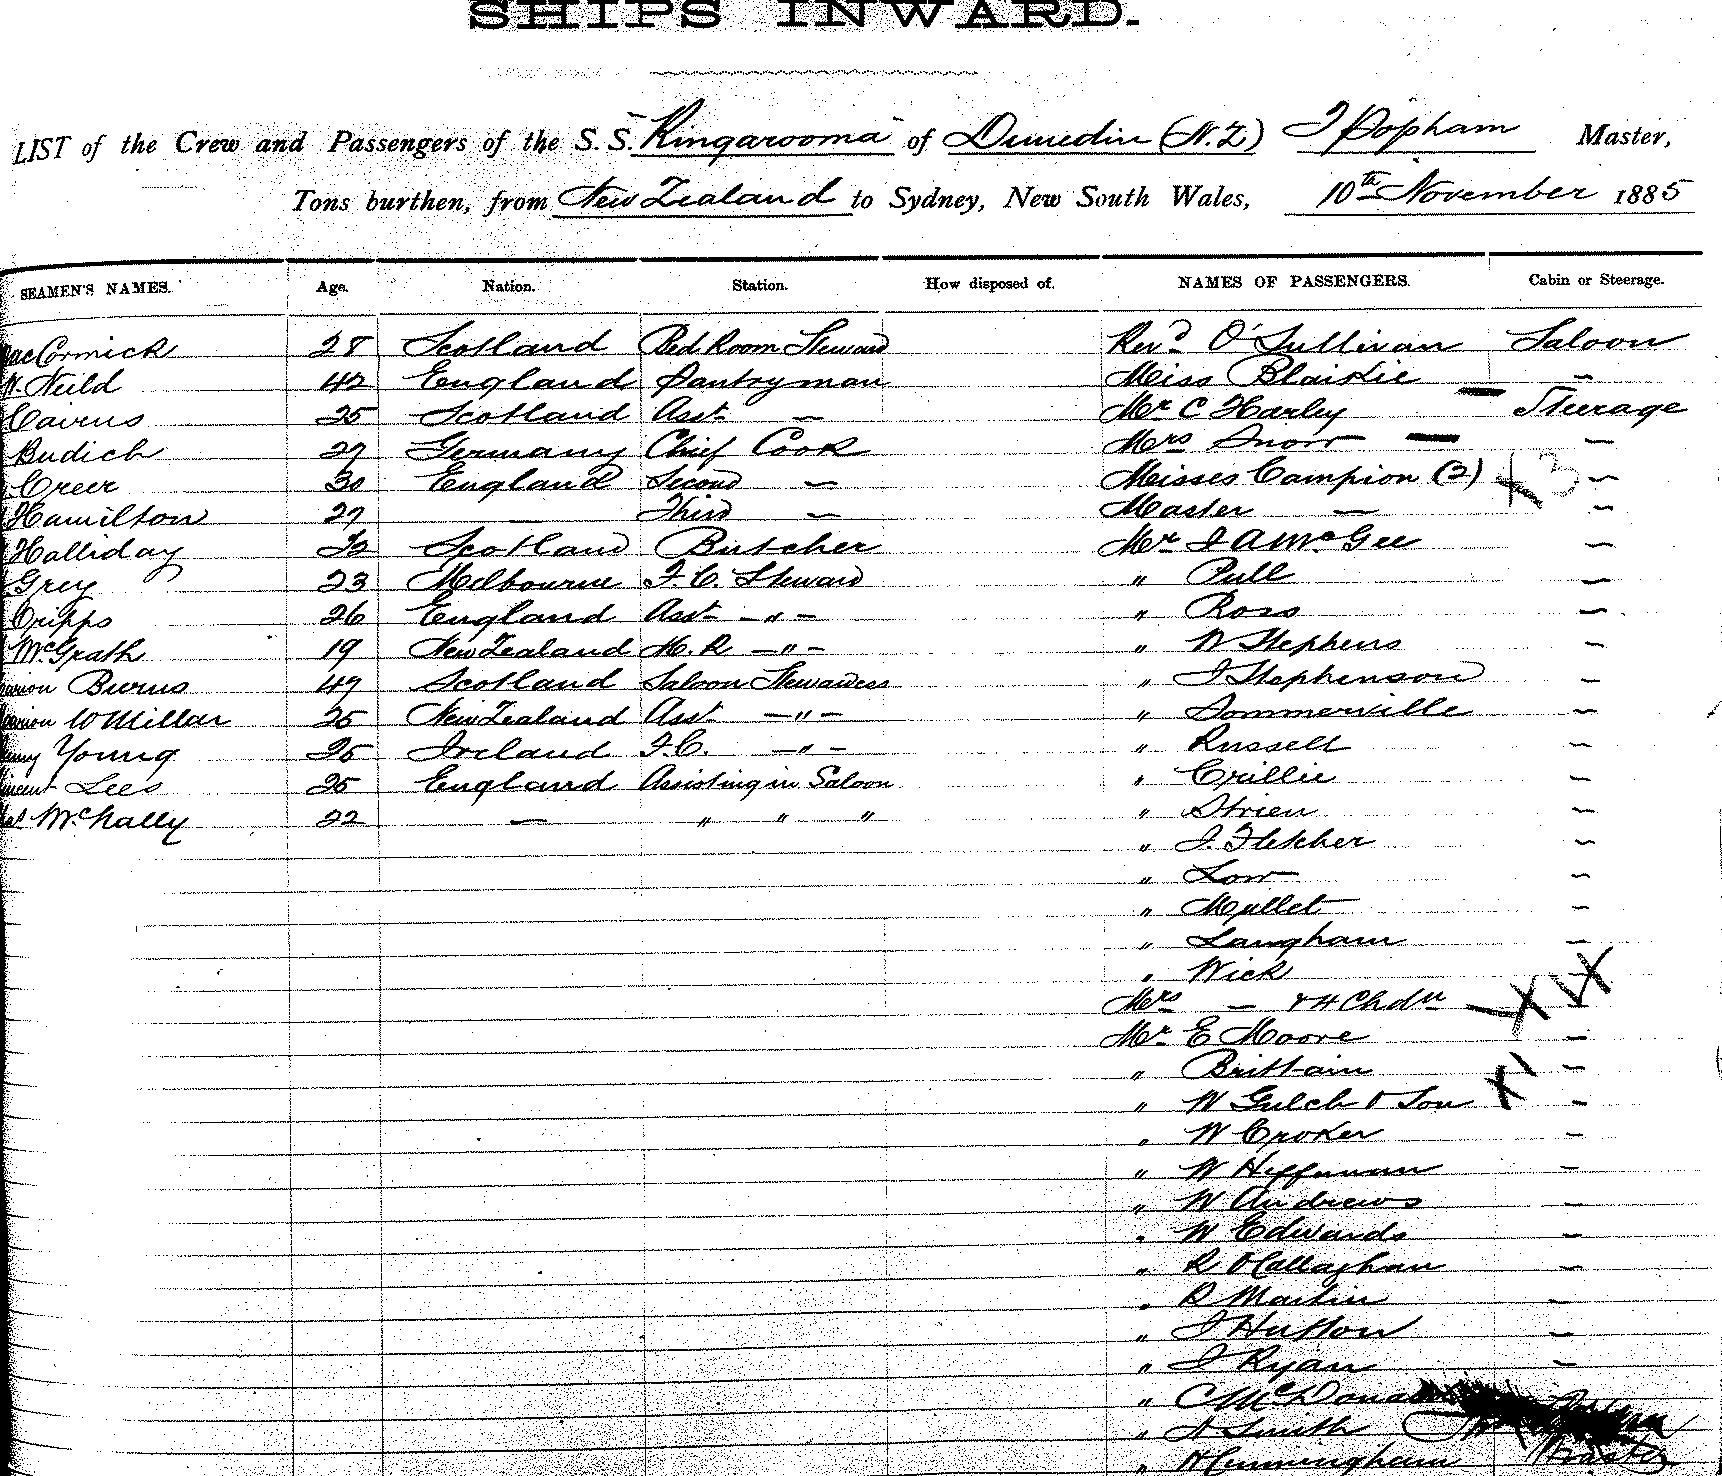 SHIPS INWARD.
LIST of the Crew and Passengers of the S.S. Ringarooma of Dunedin (N.Z) J Popham Master,
Tons burthen, from New Zealand to Sydney, New South Wales, 10th November 1885
SEAMEN'S NAMES. Age. Nation. Station. How disposed of. NAMES OF PASSENGERS. Cabin or Steerage.
MacCormick 28 Scotland Bed Room Steward Revd O'Sullivan Saloon
W. Neild 42 England Pantryman Miss Blaikie —
Cavens 25 Scotland Asst — Mr C Harley Steerage
Budich 27 Germany Chief Cook Mrs Snow —
Creer 30 England Second — Misses Campion (2) X 3 —
Hamilton 27 — Third — Master — —
Halliday 32 Scotland Butcher Mr J A McGee —
Grey 23 Melbourne F.C. Steward " Pull —
Cripps 26 England Asst — " — " Ross —
McGrath 19 New Zealand M.R — " — " W Stephens —
Burns 49 Scotland Saloon Stewardess " J Stephenson —
W Millar 25 New Zealand Asst — " — " Sommerville —
Young 25 Ireland F.C. — " — " Russell —
Lees 25 England Assisting in Saloon " Crillie —
McNally 22 — " " " " Strien —
" J. Fletcher —
" Low —
" Mullet —
" Langham —
" Wick
Mrs — & 4 Chdn X
Mr E Moore —
" Brittain —
" W Gulch & Son X —
" W Croker —
" W Heffernan —
" W Andrews —
" W Edwards —
" R O'Callaghan —
" R Martin —
" J Hutton —
" J Ryan —
" C McDonald
" A Smith
" H Cunningham Master